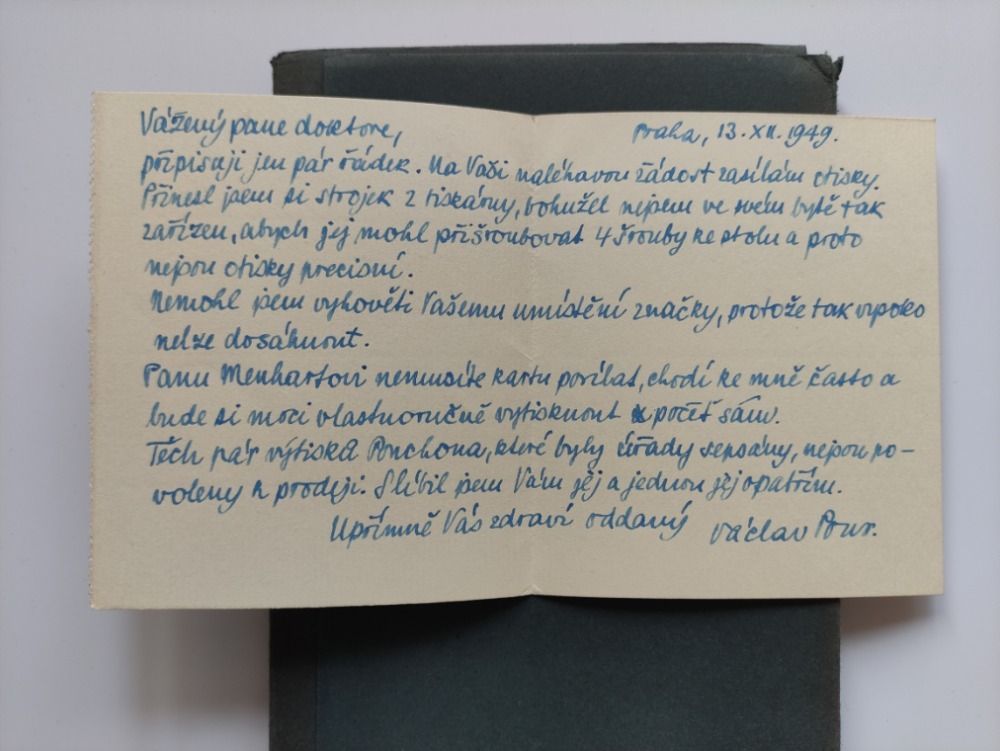 Vážený pane doktore,
Praha, 13. XII. 1949.
připisuji jen pár řádek. Na Vaši naléhavou žádost zasílám otisky.
Přinesl jsem si strojek z tiskárny, bohužel nejsem ve svém bytě tak
zařízen, abych jej mohl přišroubovat 4 šrouby ke stolu a proto
nejsou otisky precisní.
Nemohl jsem vyhověti Vašemu umístění značky, protože tak vysoko
nelze dosáhnout.
Panu Menhartovi nemusíte kartu posílat, chodí ke mně často a
bude si moci vlastnoručně vytisknout počet sám.
Těch pár výtisků Ponchona, které byly úřady sepsány, nejsou po-
voleny k prodeji. Slíbil jsem Vám jej a jednou jej opatřím.
Upřímně Vás zdraví oddaný Václav Pour.